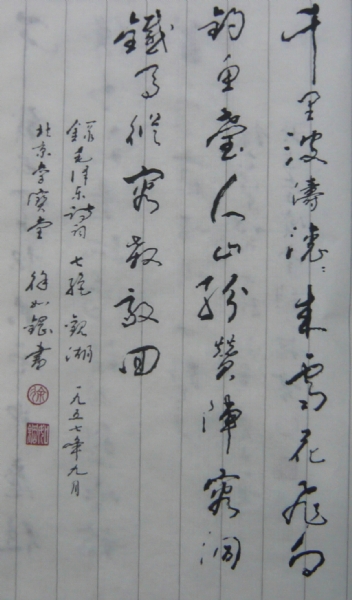 千里波涛滚滚来雪花飞向
钓鱼台人山纷赞阵容阔
铁马从容杀敌回
录毛泽东诗词七绝观潮一九五七年九月
北京学宝堂徐如银书